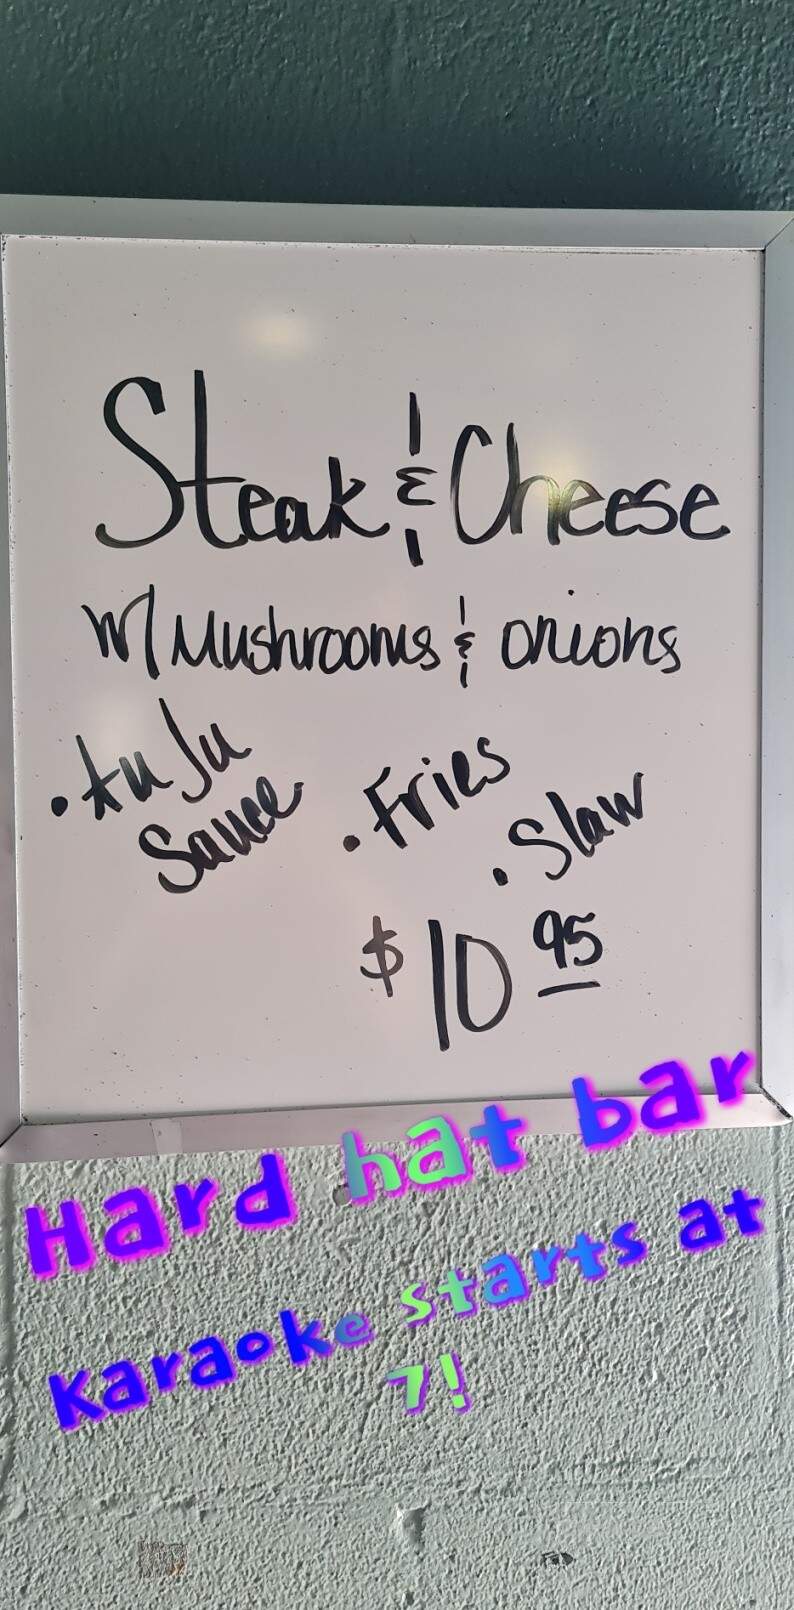 Steak & Cheese
w/ Mushrooms & onions
• Au Ju
Sauce
• Fries
• Slaw
$10 95
Hard hat bar
Karaoke starts at
7!